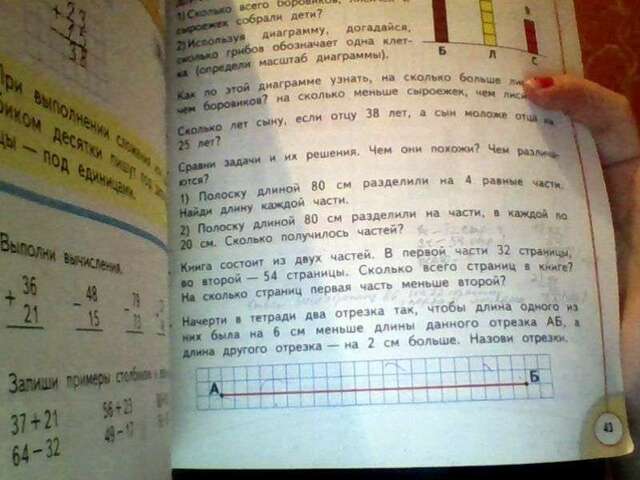 + 23
При выполнении сложения
десятки пишут под
— под единицами.
Выполни вычисления.
+ 36
21
− 48
15
− 79
Запиши примеры столбиком и
37 + 21
56 + 23
64 − 32
49 − 17
1) Сколько всего боровиков,
сыроежек собрали дети?
2) Используя диаграмму, догадайся,
сколько грибов обозначает одна клет-
ка (определи масштаб диаграммы).
Б Л С
Как по этой диаграмме узнать, на сколько больше
чем боровиков? на сколько меньше сыроежек, чем
Сколько лет сыну, если отцу 38 лет, а сын моложе отца на
25 лет?
Сравни задачи и их решения. Чем они похожи? Чем различа-
ются?
1) Полоску длиной 80 см разделили на 4 равные части.
Найди длину каждой части.
2) Полоску длиной 80 см разделили на части, в каждой по
20 см. Сколько получилось частей?
Книга состоит из двух частей. В первой части 32 страницы,
во второй — 54 страницы. Сколько всего страниц в книге?
На сколько страниц первая часть меньше второй?
Начерти в тетради два отрезка так, чтобы длина одного из
них была на 6 см меньше длины данного отрезка АБ, а
длина другого отрезка — на 2 см больше. Назови отрезки.
А Б
43